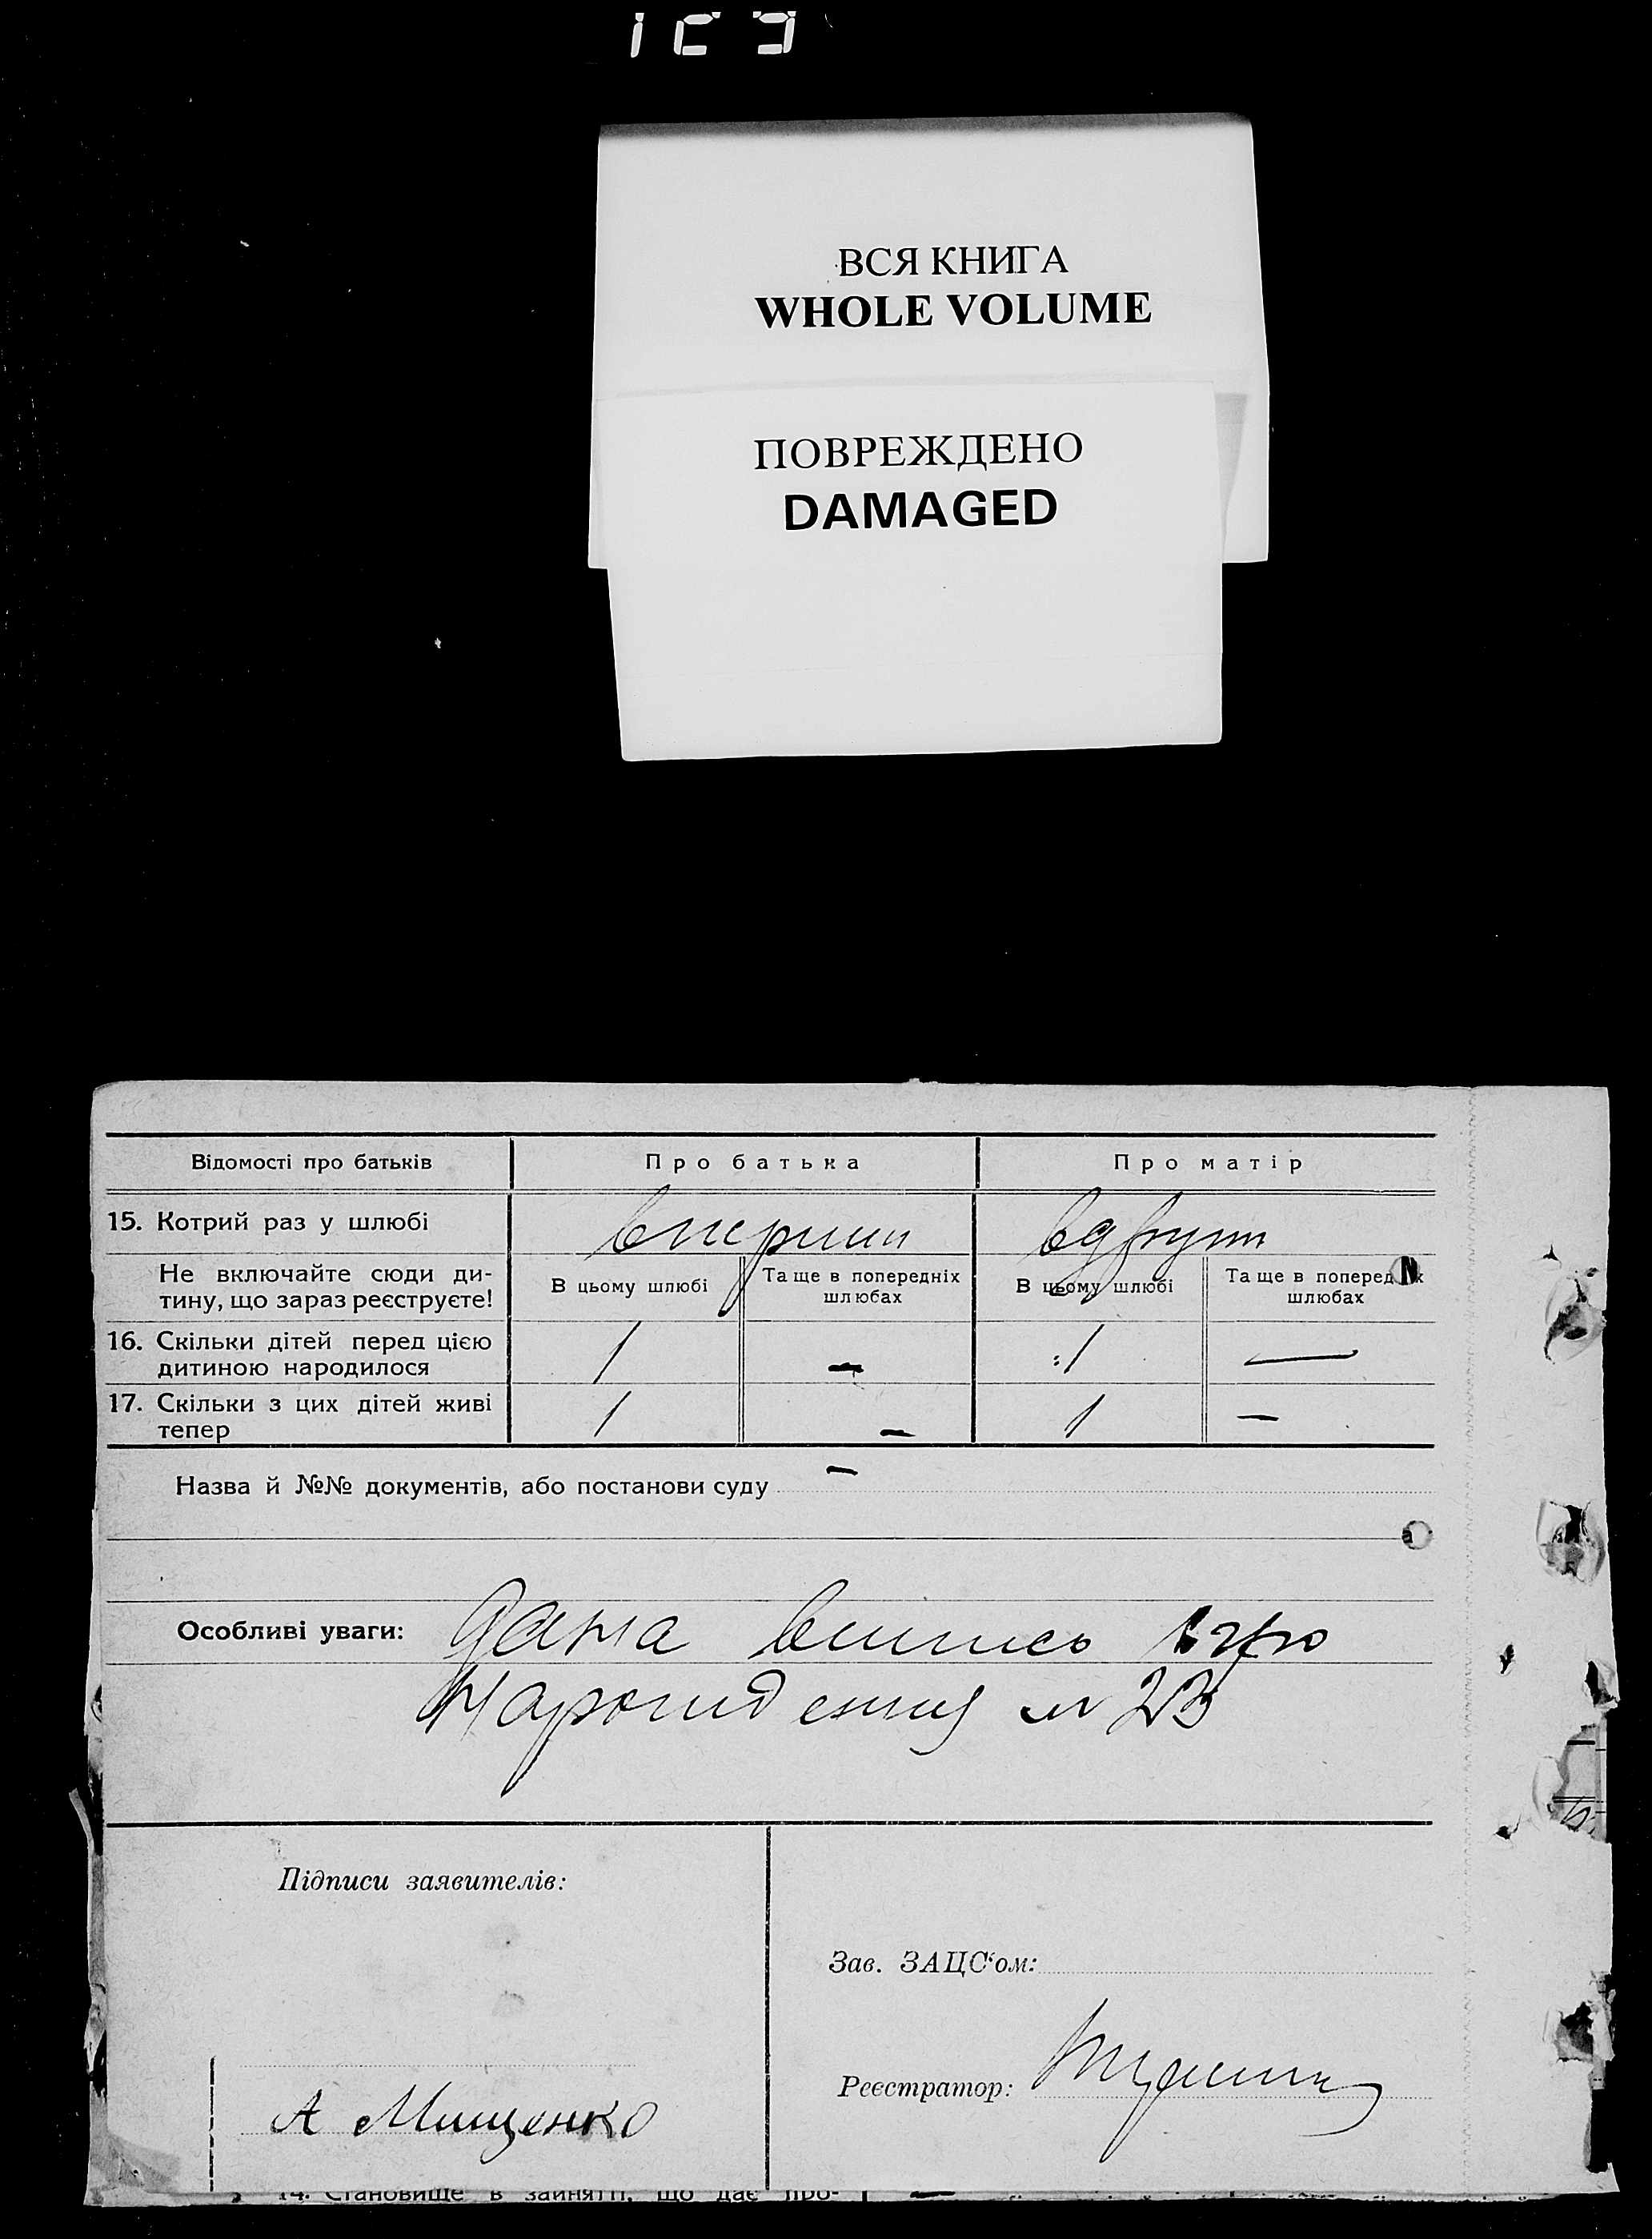 ВСЯ КНИГА
WHOLE VOLUME
ПОВРЕЖДЕНО
DAMAGED
Відомості про батьків Про батька Про матір
15. Котрий раз у шлюбі вперше вдруге
Не включайте сюди ди-
тину, що зараз реєструєте!
В цьому шлюбі Та ще в попередніх шлюбах В цьому шлюбі Та ще в поперед х шлюбах
16. Скільки дітей перед цією
дитиною народилося 1 — 1 —
17. Скільки з цих дітей живі
тепер 1 — 1 —
Назва й №№ документів, або постанови суду —
Особливі уваги: дана випись про
народження № 23
Підписи заявителів:
А Мищенко
Зав. ЗАЦС‘ом:
Реєстратор:
14. Становище в занятті, що дає про-